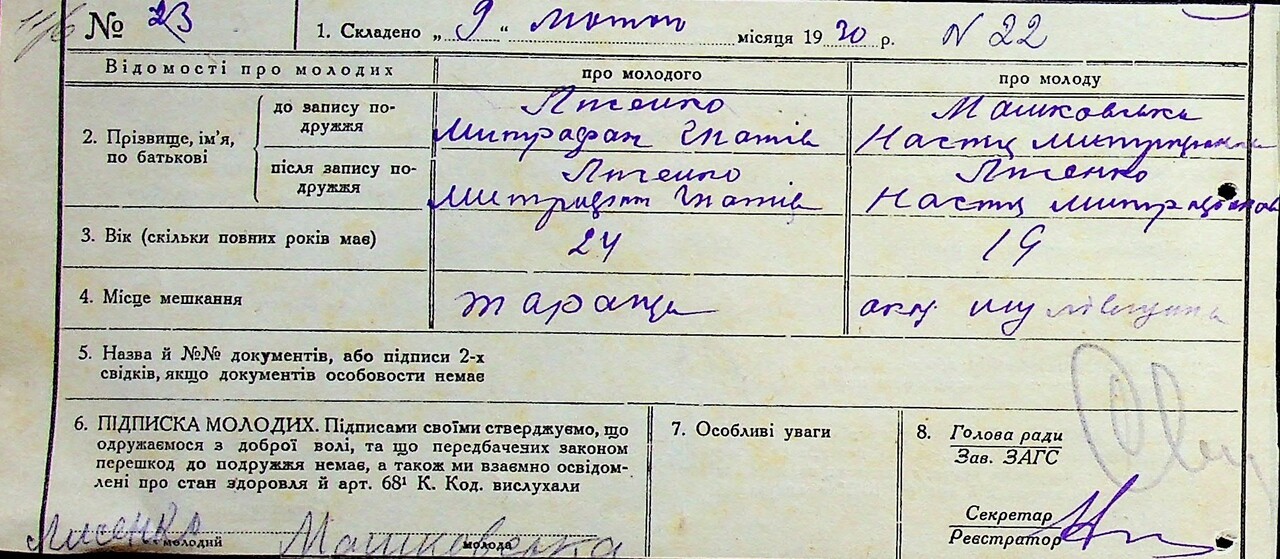 № 23 1. Складено „ 9 “ лютого місяця 1930 р. N 22
Відомості про молодих про молодого про молоду
2. Прізвище, ім’я, по батькові
до запису подружжя
Лисенко
Митрафан Гнатів
Машковська
Настя
після запису подружжя
Лисенко
Митрафан Гнатів
Лисенко
Настя
3. Вік (скільки повних років має) 24 19
4. Місце мешкання Тараща
5. Назва й №№ документів, або підписи 2-х
свідків, якщо документів особовости немає
6. ПІДПИСКА МОЛОДИХ. Підписами своїми стверджуємо, що
одружаємося з доброї волі, та що передбачених законом
перешкод до подружжя немає, а також ми взаємно освідом-
лені про стан здоровля й арт. 68¹ К. Код. вислухали
Лисенко Машковска
молодий молода
7. Особливі уваги
8. Голова ради
Зав. ЗАГС
Секретар
Реєстратор